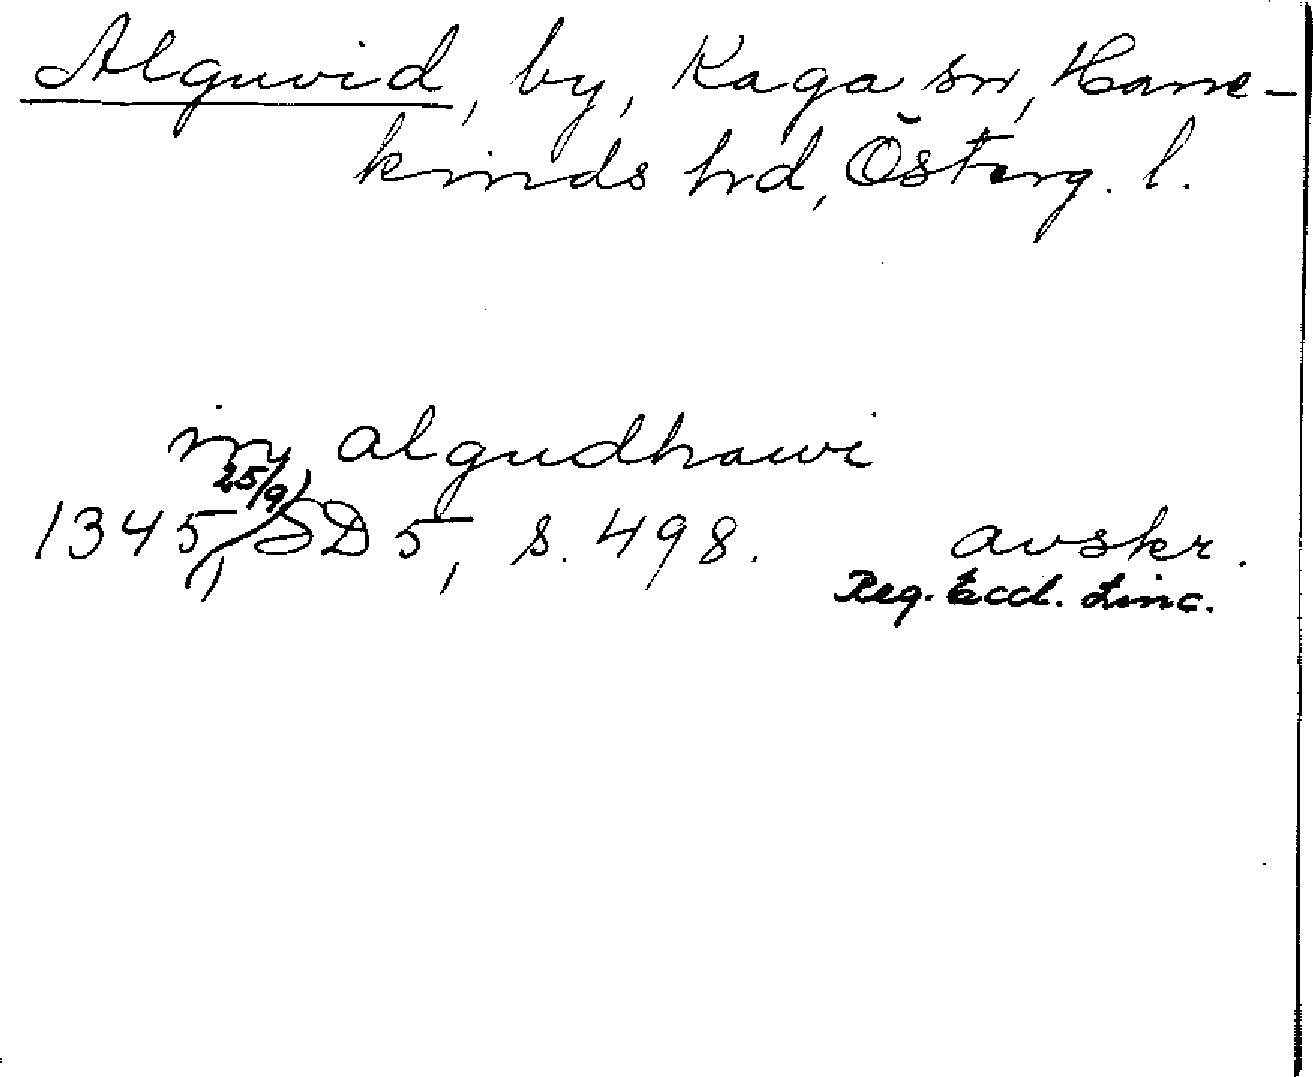 Alguvid, by, Kaga sn, Hane-
kinds hd, Österg. l.
in algudhawi
1345 25/9, SD 5, s. 498. avskr.
Reg. Eccl. Linc.